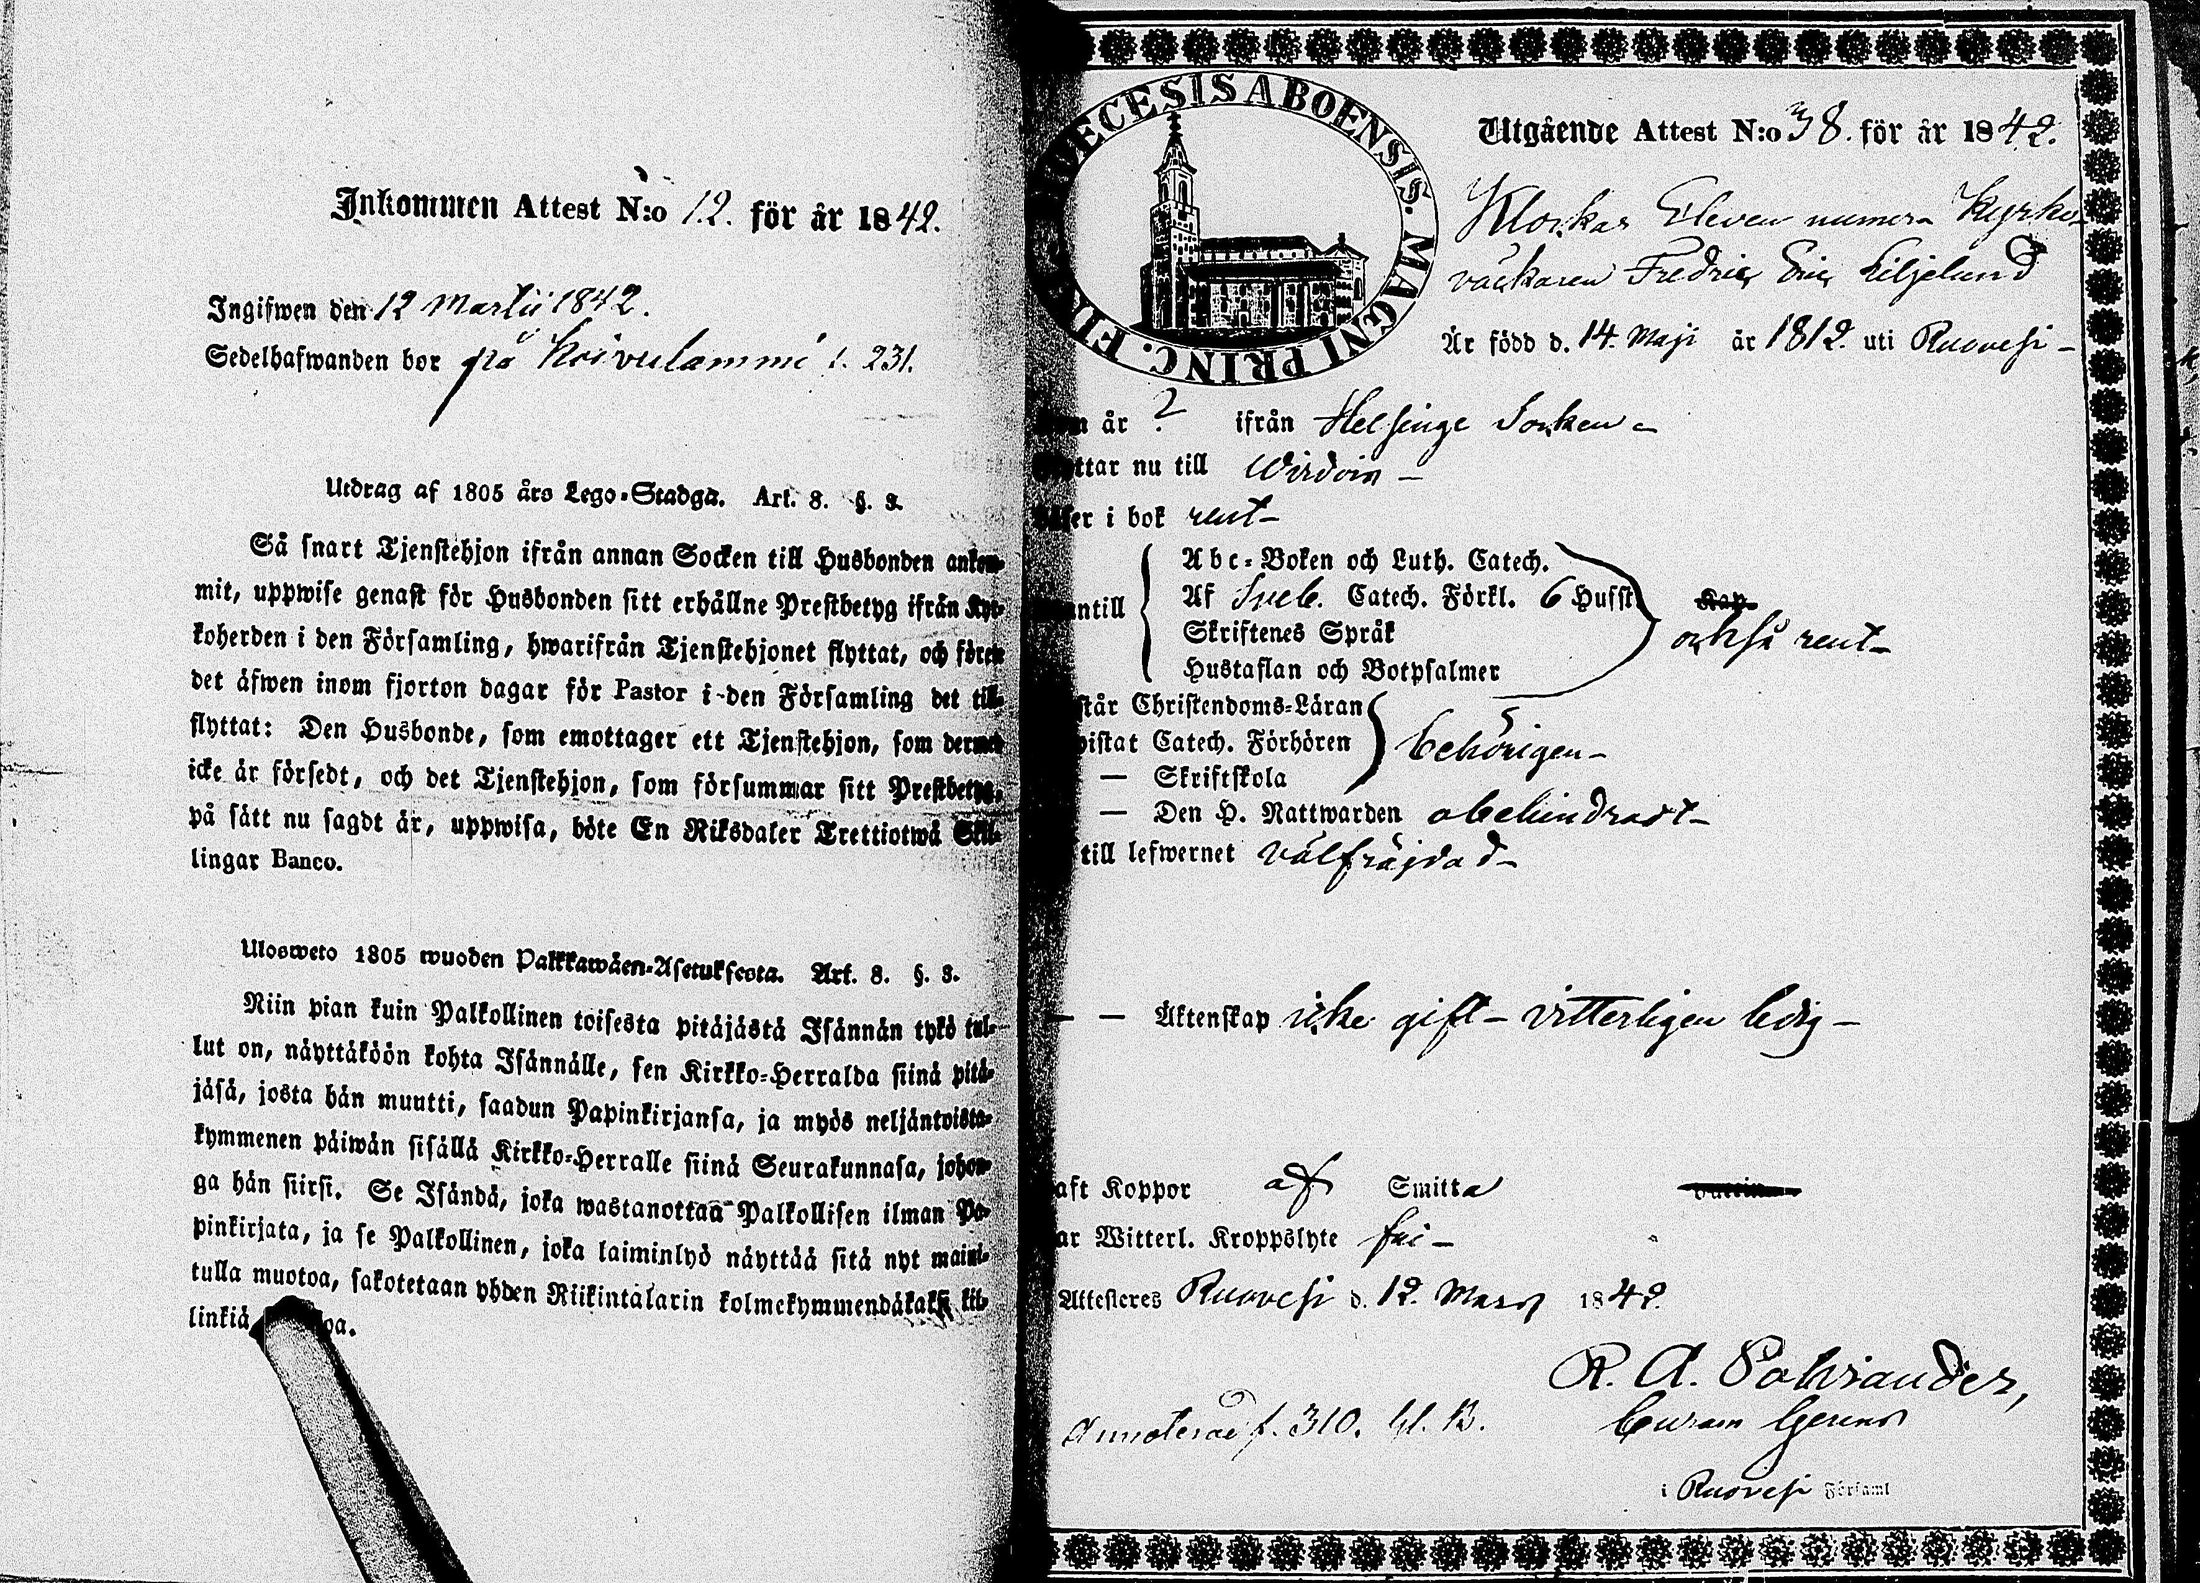 Inkommen Attest N:o 12. för år 1842.
Ingifwen den 12 Martii 1842.
Sedelhafwanden bor på Koivulammi 231.
Utdrag af 1805 års Lego-Stadga. Art. 8. §. 3.
Så snart Tjenstehjon ifrån annan Socken till Husbonden ankom-
mit, uppwise genast för Husbonden sitt erhållne Prestbetyg ifrån Kyr-
koherden i den Församling, hwarifrån Tjenstehjonet flyttat, och förete
det äfwen inom fjorton dagar för Pastor i den Församling det till-
flyttat: Den Husbonde, som emottager ett Tjenstehjon, som dermed
icke är försedt, och det Tjenstehjon, som försummar sitt Prestbetyg,
på sätt nu sagdt är, uppwisa, böte En Riksdaler Trettiotwå Skil-
lingar Banco.
Ulosweto 1805 wuoden Palkkawäen-Asetuksesta. Art. 8. §. 3.
Niin pian kuin Palkollinen toisesta pitäjästä Isännän tykö tul-
lut on, näyttäköön kohta Isännälle, sen Kirkko-Herralda siinä pitä-
jäsä, josta hän muutti, saadun Papinkirjansa, ja myös neljäntoista-
kymmenen päiwän sisällä Kirkko-Herralle siinä Seurakunnasa, johon-
ga hän siirsi. Se Isändä, joka wastanottaa Palkollisen ilman Pa-
pinkirjata, ja se Palkollinen, joka laiminlyö näyttää sitä nyt maini-
tulla muotoa, sakotetaan yhden Riikintalarin kolmekymmendäkaksi kil-
linkiä oa.
DIOECESIS ABOENSIS. MAGNI PRINC. FINL.
Utgående Attest N:o 38. för år 1842.
Klockar Eleven numera Kyrko-
väckaren Fredric Eric Liljelund
Är född d. 14. Maji år 1812. uti Ruovesi-
Kom år ? ifrån Helsinge Socken-
Flyttar nu till Wirdois-
Läser i bok rent-
Abc-Boken och Luth. Catech.
utantill Af Sveb. Catech. Förkl. 6 Husst
Skriftenes Språk
Hustaflan och Botpsalmer
också rent-
står Christendoms-Läran
bistat Catech. Förhören behörigen-
— Skriftskola
— Den H. Nattwarden obehindradt-
till lefwernet välfräjdad-
— — Äktenskap icke gift- vitterligen ledig-
aft Koppor af Smitta
ar Witterl. Kroppslyte fri-
Attesteres Ruovesi d. 12. Mars 1842.
R. A.
Curam Gerens
Annoterad f. 310. Gl. B.
i Ruovesi Församl